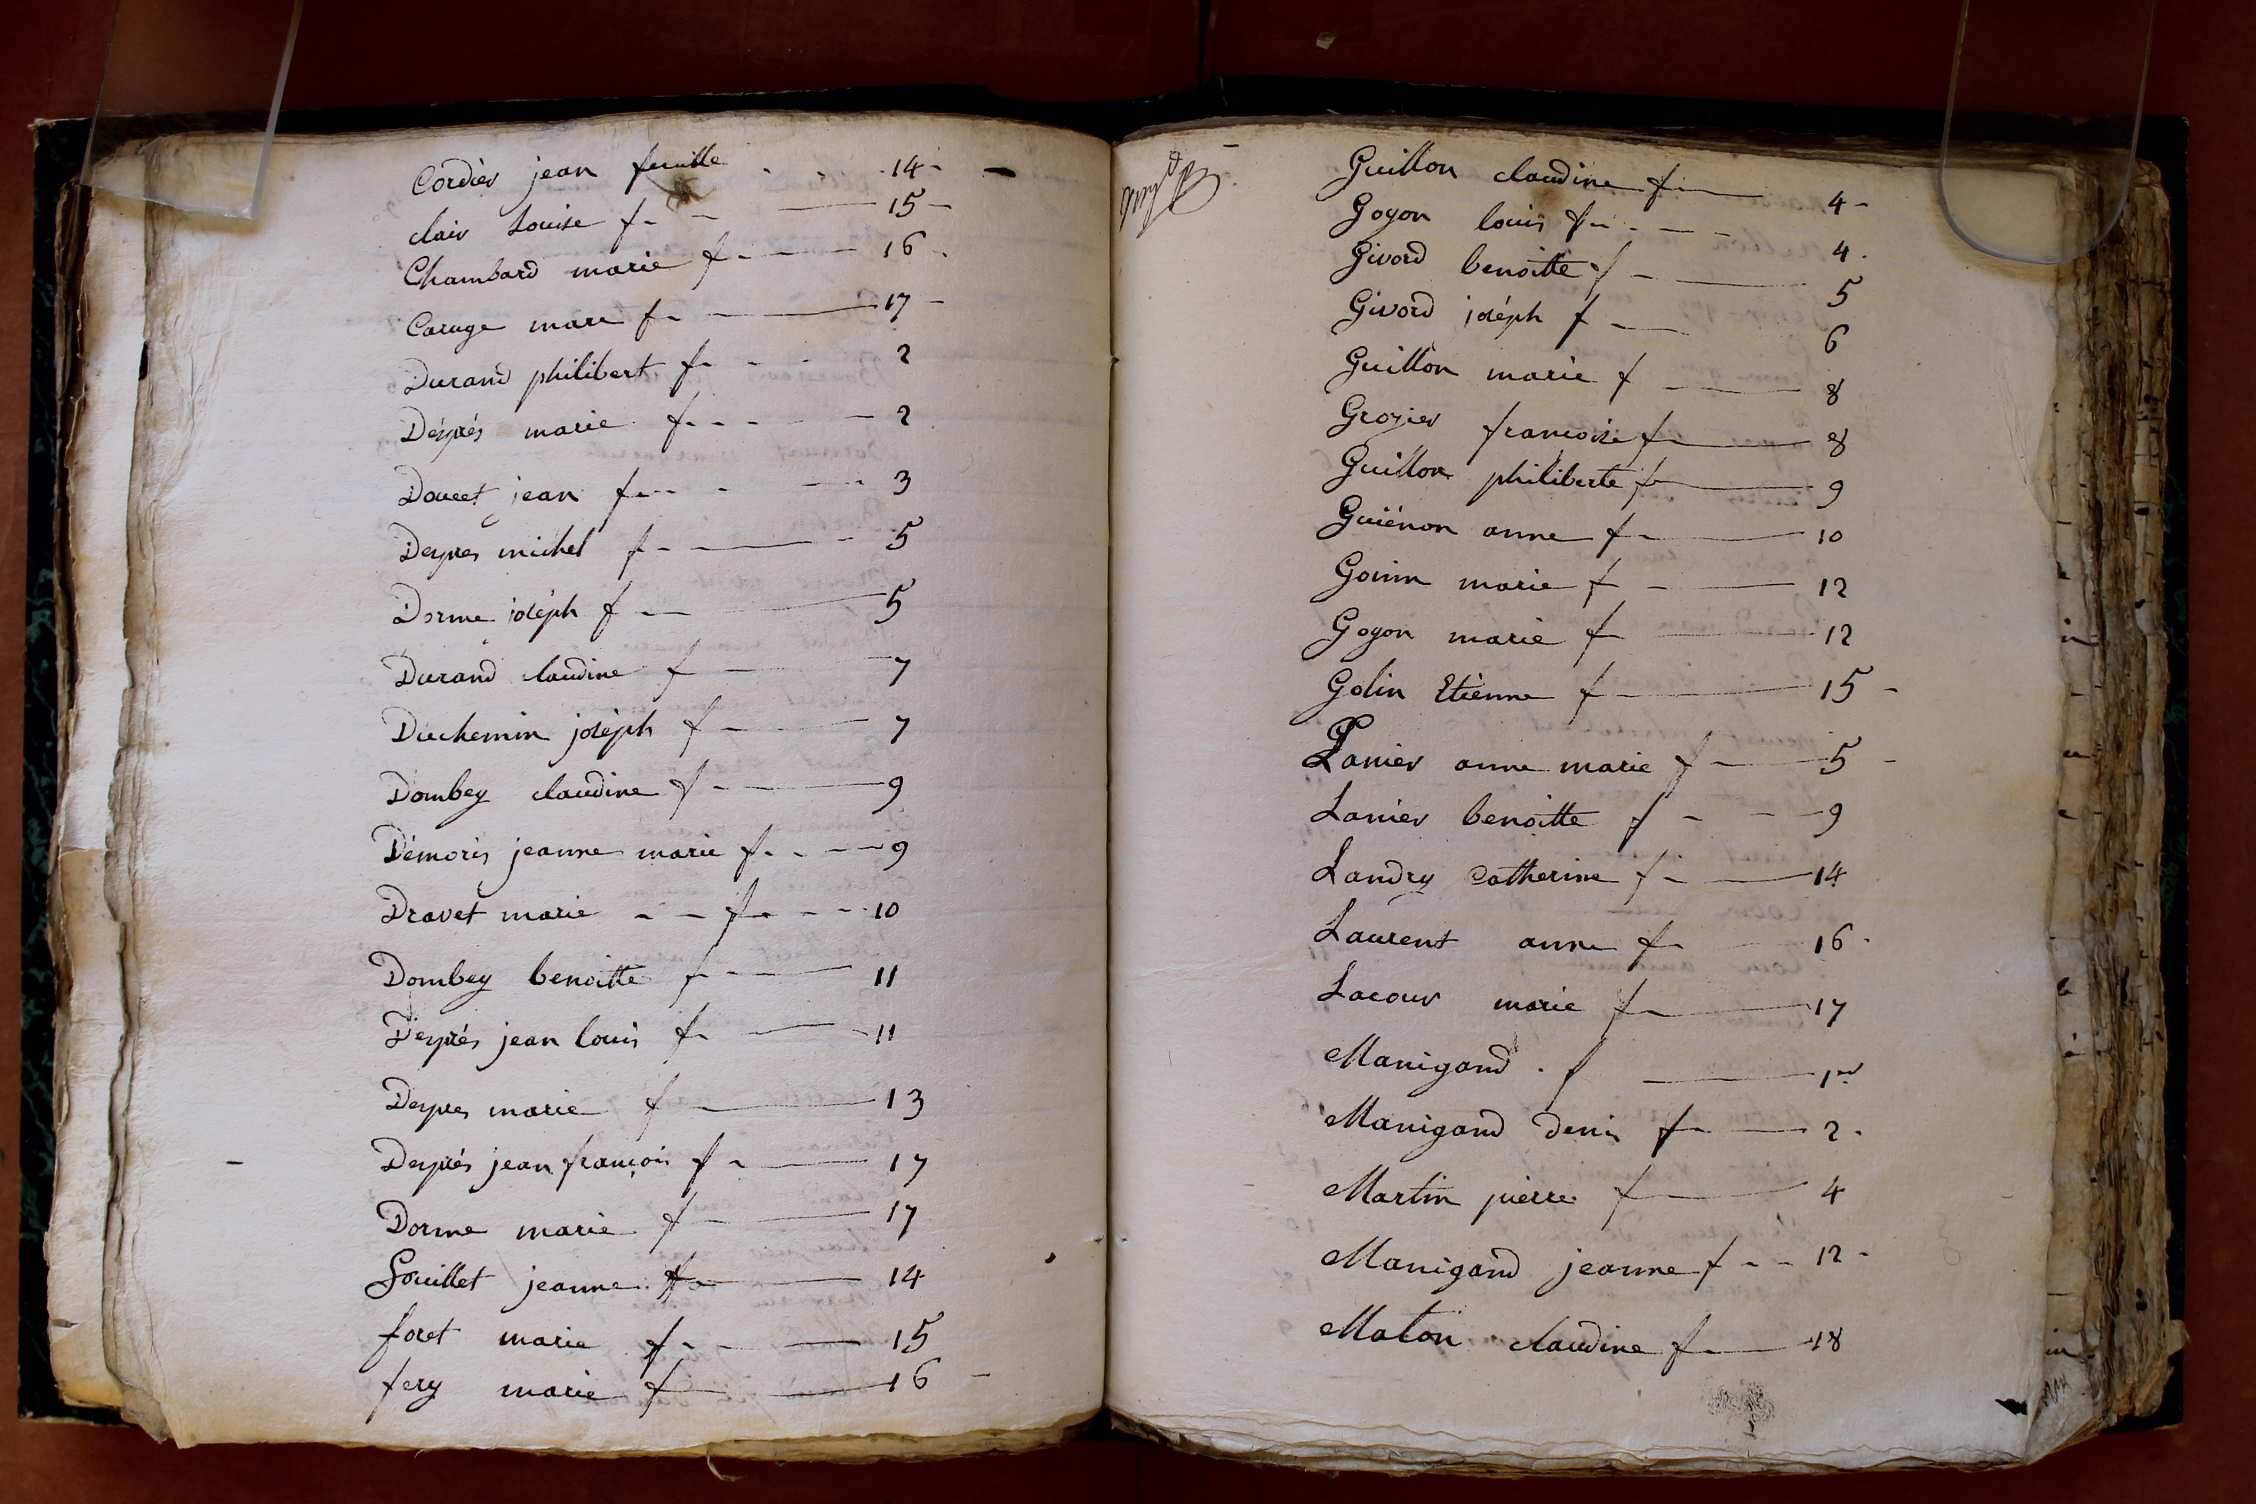 Cordier jean feuille . . . 14 -
clair Louise f - - 15 -
Chambard marie f - - - 16 -
Caruge marc f - - 17 -
Durand philibert f - - - 2
Déprés marie f - - - - 2
Doucet jean f - - - - 3
Depres michel f - - - 5
Dorme joséph f - - 5
Durand claudine f - 7
Duchemin joséph f - 7
Dombey claudine f - 9
Démoris jeanne marie f - - - 9
Dravet marie - - f - - - 10
Dombey benoitte f - 11
Déprés jean louis f - 11
Depres marie f - 13
Deprés jean françois f - 17
Dorme marie f - 17
Fouillet jeanne f - 14
foret marie f - - 15
fery marie f - 16 -
Guillon claudine f - 4 -
Goyon louis f - - - 4 .
Givord benoitte f - 5
Givord joséph f - 6
Guillon marie f - 8
Grozier francoise f - 8
Guillon philiberte f - 9
Guiénon anne f - 10
Gonin marie f - 12
Goyon marie f - 12
Golin Etienne f - 15 -
Lanier anne marie f - 5 -
Lanier benoitte f - - 9
Landry Catherine f - 14
Laurent anne f - 16 .
Lacour marie f - 17
Manigand . f - 1er
Manigand denis f - 2 .
Martin pierre f - 4
Manigand jeanne f - - 12 -
Maton claudine f - 18